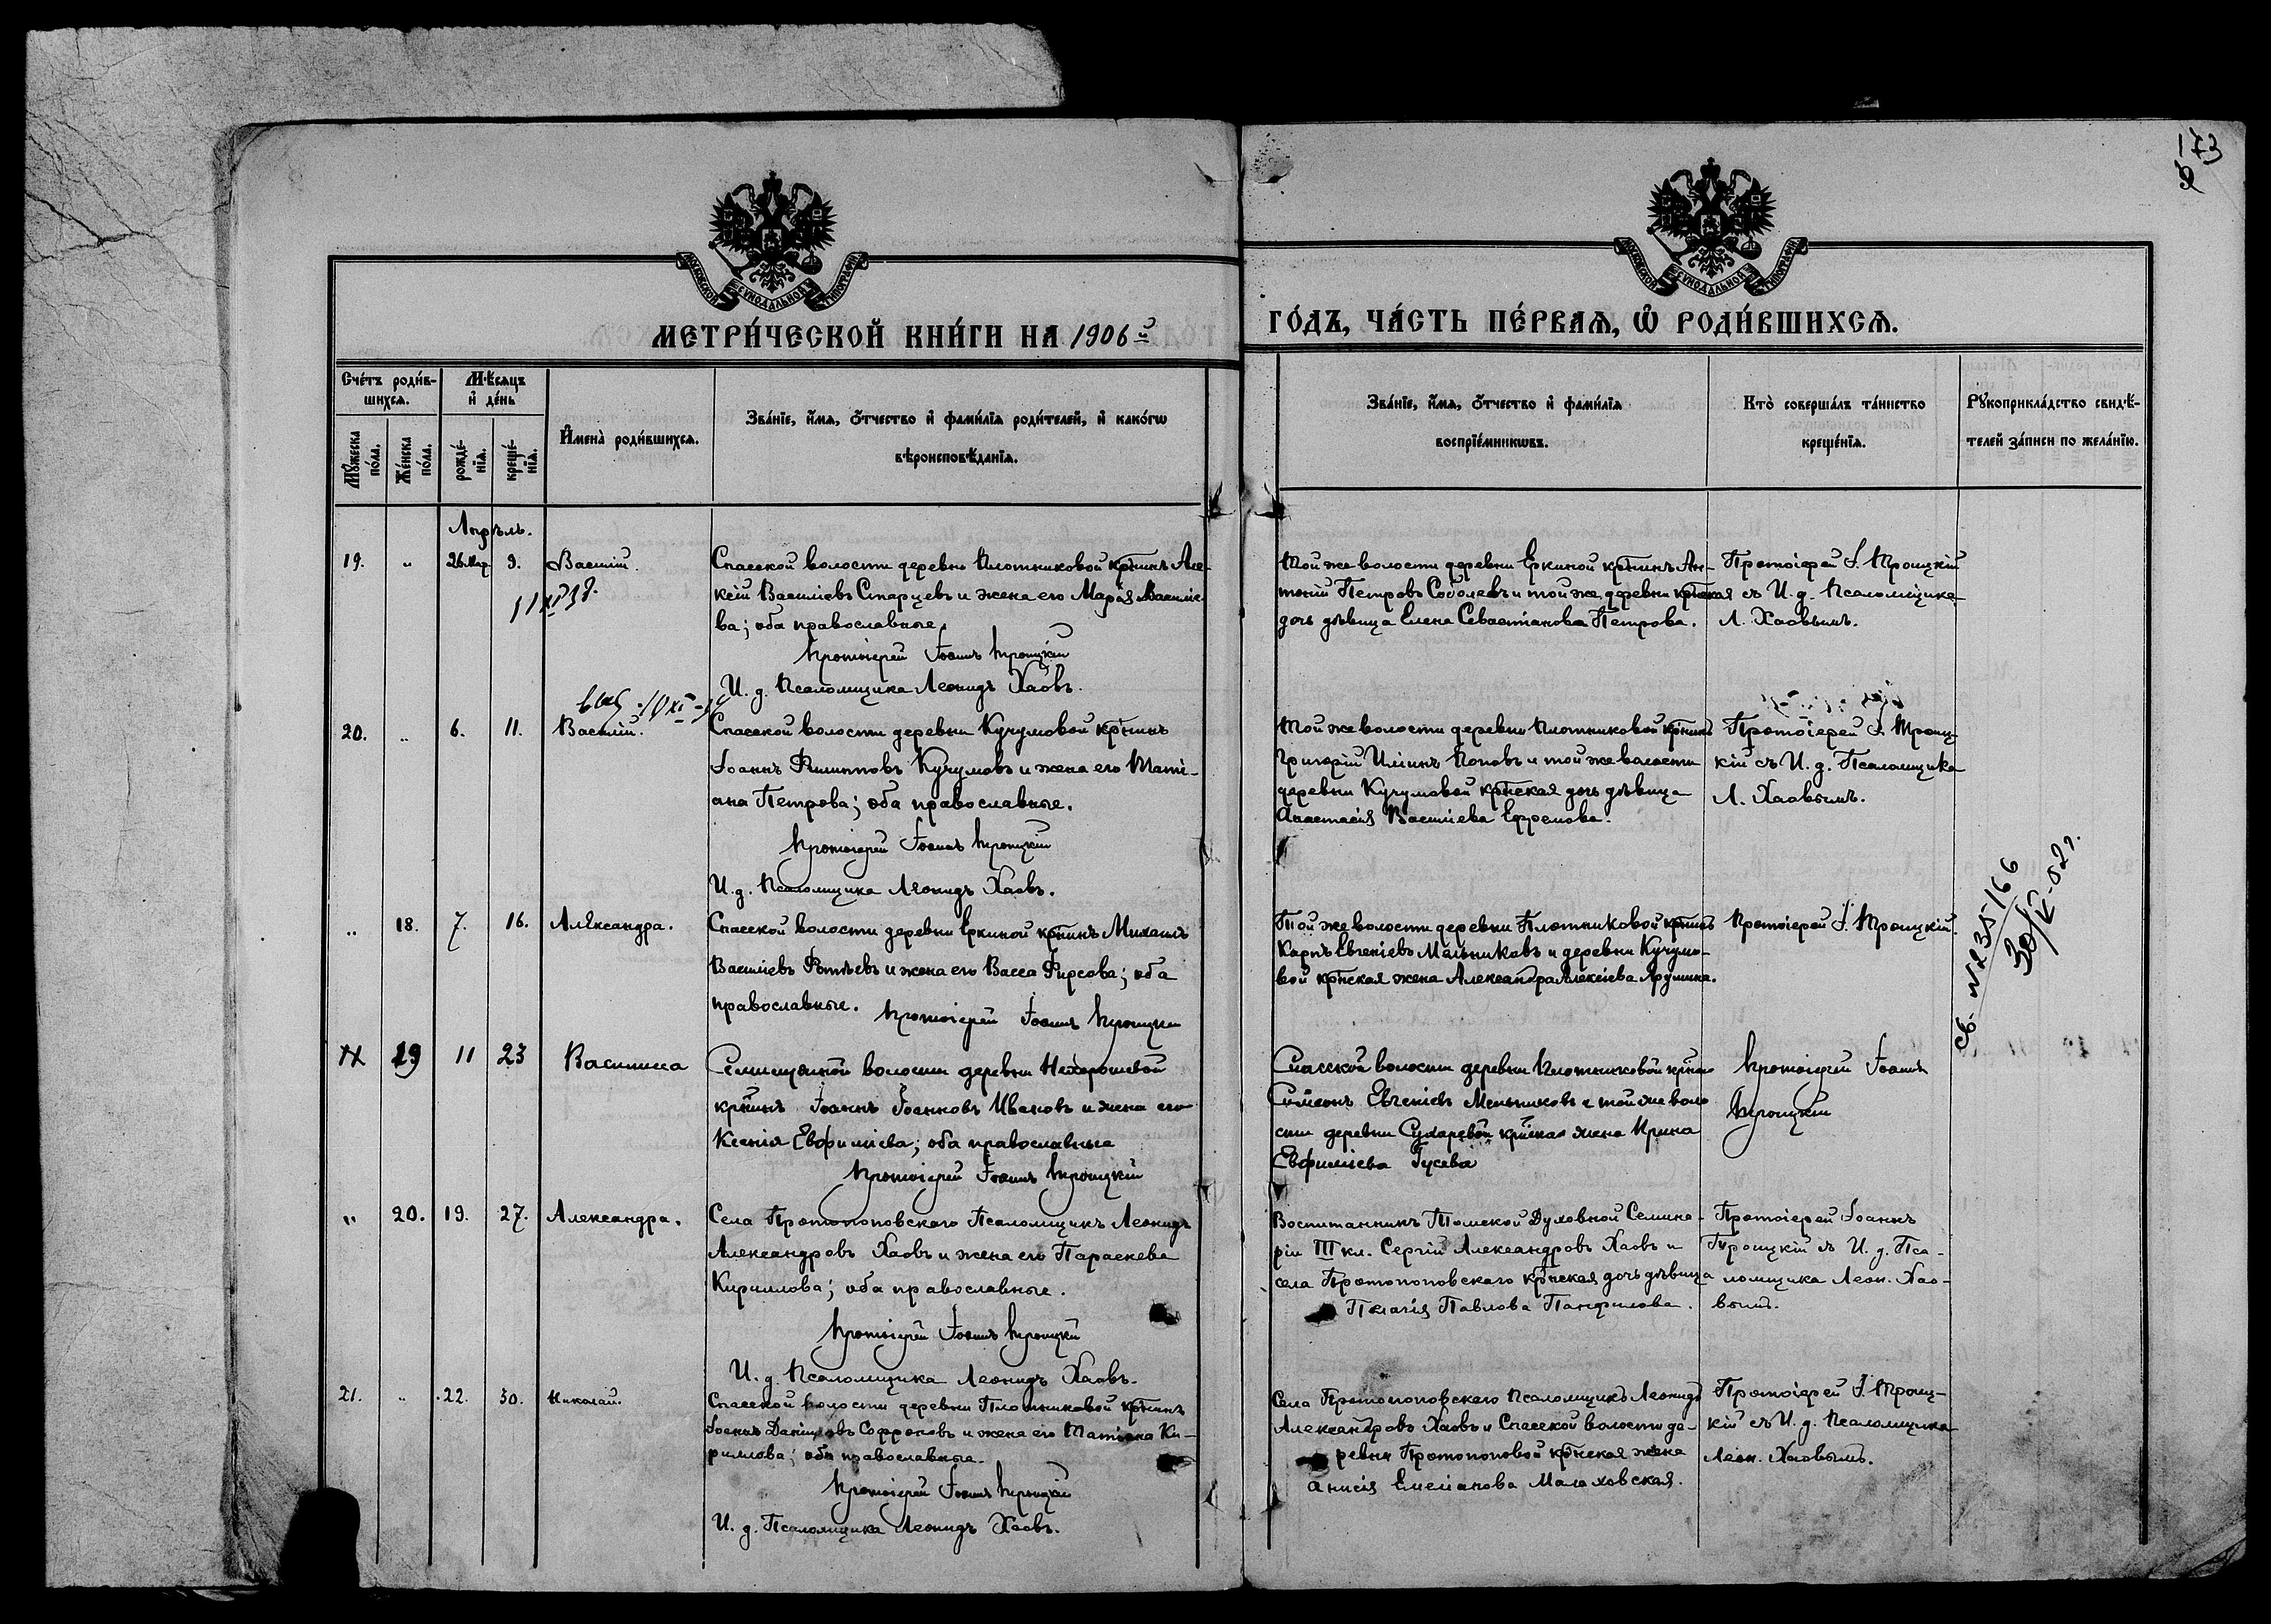 173
МОСКОВСКОЙ СУНОДАЛЬНОЙ ТИПОГРАФІИ
МОСКОВСКОЙ СУНОДАЛЬНОЙ ТИПОГРАФІИ
МЕТРИ́ЧЕСКОЙ КНИ́ГИ НА 1906 й
ГО́ДЪ, ЧА́СТЬ ПЕ́РВАЯ, Ѡ РОДИ́ВШИХСЯ.
Сче́тъ роди́в-
шихся.
Мꙋ́жеска по́ла.
Же́нска по́ла.
Мѣ́сяцъ
и҆ де́нь
рожде́-
нїя.
креще́-
нїя.
И҆мена̀ роди́вшихся.
Зва́нїе, и҆́мя, ѻ҆́тчество и҆ фами́лїя роди́телей, и҆ како́гѡ
вѣроисповѣ́данїя.
Зва́нїе, и҆́мя, ѻ҆́тчество и҆ фами́лїя
воспрїе́мникѡвъ.
Кто̀ соверша́лъ та́инство
креще́нїя.
Рꙋкоприкла́дство свидѣ́-
телей за́писи по жела́нїю.
Апрѣль.
19. " 26 Мар. 9. Василій.
Спасской волости деревни Плотниковой кр̃нинъ Але-
ксій Василіевъ Старцевъ и жена его Марія Василіе-
ва; оба православные.
Протоіерей Іоаннъ Троицкій
И. д. Псаломщика Леонидъ Хаовъ.
Той же волости деревни Еркиной кр̃нинъ Ан-
тоній Петровъ Соболевъ и той же деревни кр̃нская
дочь дѣвица Елена Севастіанова Петрова.
Протоіерей І. Троицкій
съ И. д. Псаломщика
Л. Хаовымъ.
20. " 6. 11. Василій.
Спасской волости деревни Кучумовой кр̃нинъ
Іоаннъ Филипповъ Кучумовъ и жена его Таті-
ана Петрова; оба православные.
Протоіерей Іоаннъ Троицкій
И. д. Псаломщика Леонидъ Хаовъ.
Той же волости деревни Плотниковой кр̃нинъ
Григорій Иліинъ Поповъ и той же волости
деревни Кучумовой кр̃нская дочь дѣвица
Анастасія Василіева Ефремова.
Протоіерей І. Троиц-
кій съ И. д. Псаломщика
Л. Хаовымъ.
" 18. 7. 16. Александра.
Спасской волости деревни Еркиной кр̃нинъ Михаилъ
Василіевъ Фотѣевъ и жена его Васса Фирсова; оба
православные.
Протоіерей Іоаннъ Троицкій
Той же волости деревни Плотниковой кр̃нинъ
Карпъ Евгеніевъ Мельниковъ и деревни Кучумо-
вой кр̃нская жена Александра Алексіева
Протоіерей І. Троицкій.
Св. №235-166
30/V-52 г.
19 11 23 Василиса
волости деревни
кр̃нинъ Іоаннъ Ивановъ и жена его
Ксенія Евфиміева; оба православные
Протоіерей Іоаннъ Троицкій
Спасской волости деревни Плотниковой кр̃нинъ
Симеонъ Евгеніевъ Мельниковъ и той же воло
сти деревни Сухаревой кр̃нская жена Ирина
Евфиміева Гусева
Протоіерей Іоаннъ
Троицкій
" 20. 19. 27. Александра.
Села Протопоповскаго Псаломщикъ Леонидъ
Александровъ Хаовъ и жена его Параскева
Кириллова; оба православные.
Протоіерей Іоаннъ Троицкій
И. д. Псаломщика Леонидъ Хаовъ.
Воспитанникъ Томской Духовной Семина-
ріи III кл. Сергій Александровъ Хаовъ и
села Протопоповскаго кр̃нская дочь дѣвица
Пелагія Павлова Панфилова.
Протоіерей Іоаннъ
Троицкій съ И. д. Пса-
ломщика Леон. Хао-
вымъ.
21. " 22. 30. Николай.
Спасской волости деревни Плотниковой кр̃нинъ
Іоаннъ Даниловъ Софроновъ и жена его Татіана Ки-
риллова; оба православные.
Протоіерей Іоаннъ Троицкій
И. д. Псаломщика Леонидъ Хаовъ.
Села Протопоповскаго Псаломщикъ Леонидъ
Александровъ Хаовъ и Спасской волости де-
ревни Протопоповой кр̃нская жена
Анисія Емеліанова Малаховская.
Протоіерей І. Троиц-
кій съ И. д. Псаломщика
Леон. Хаовымъ.